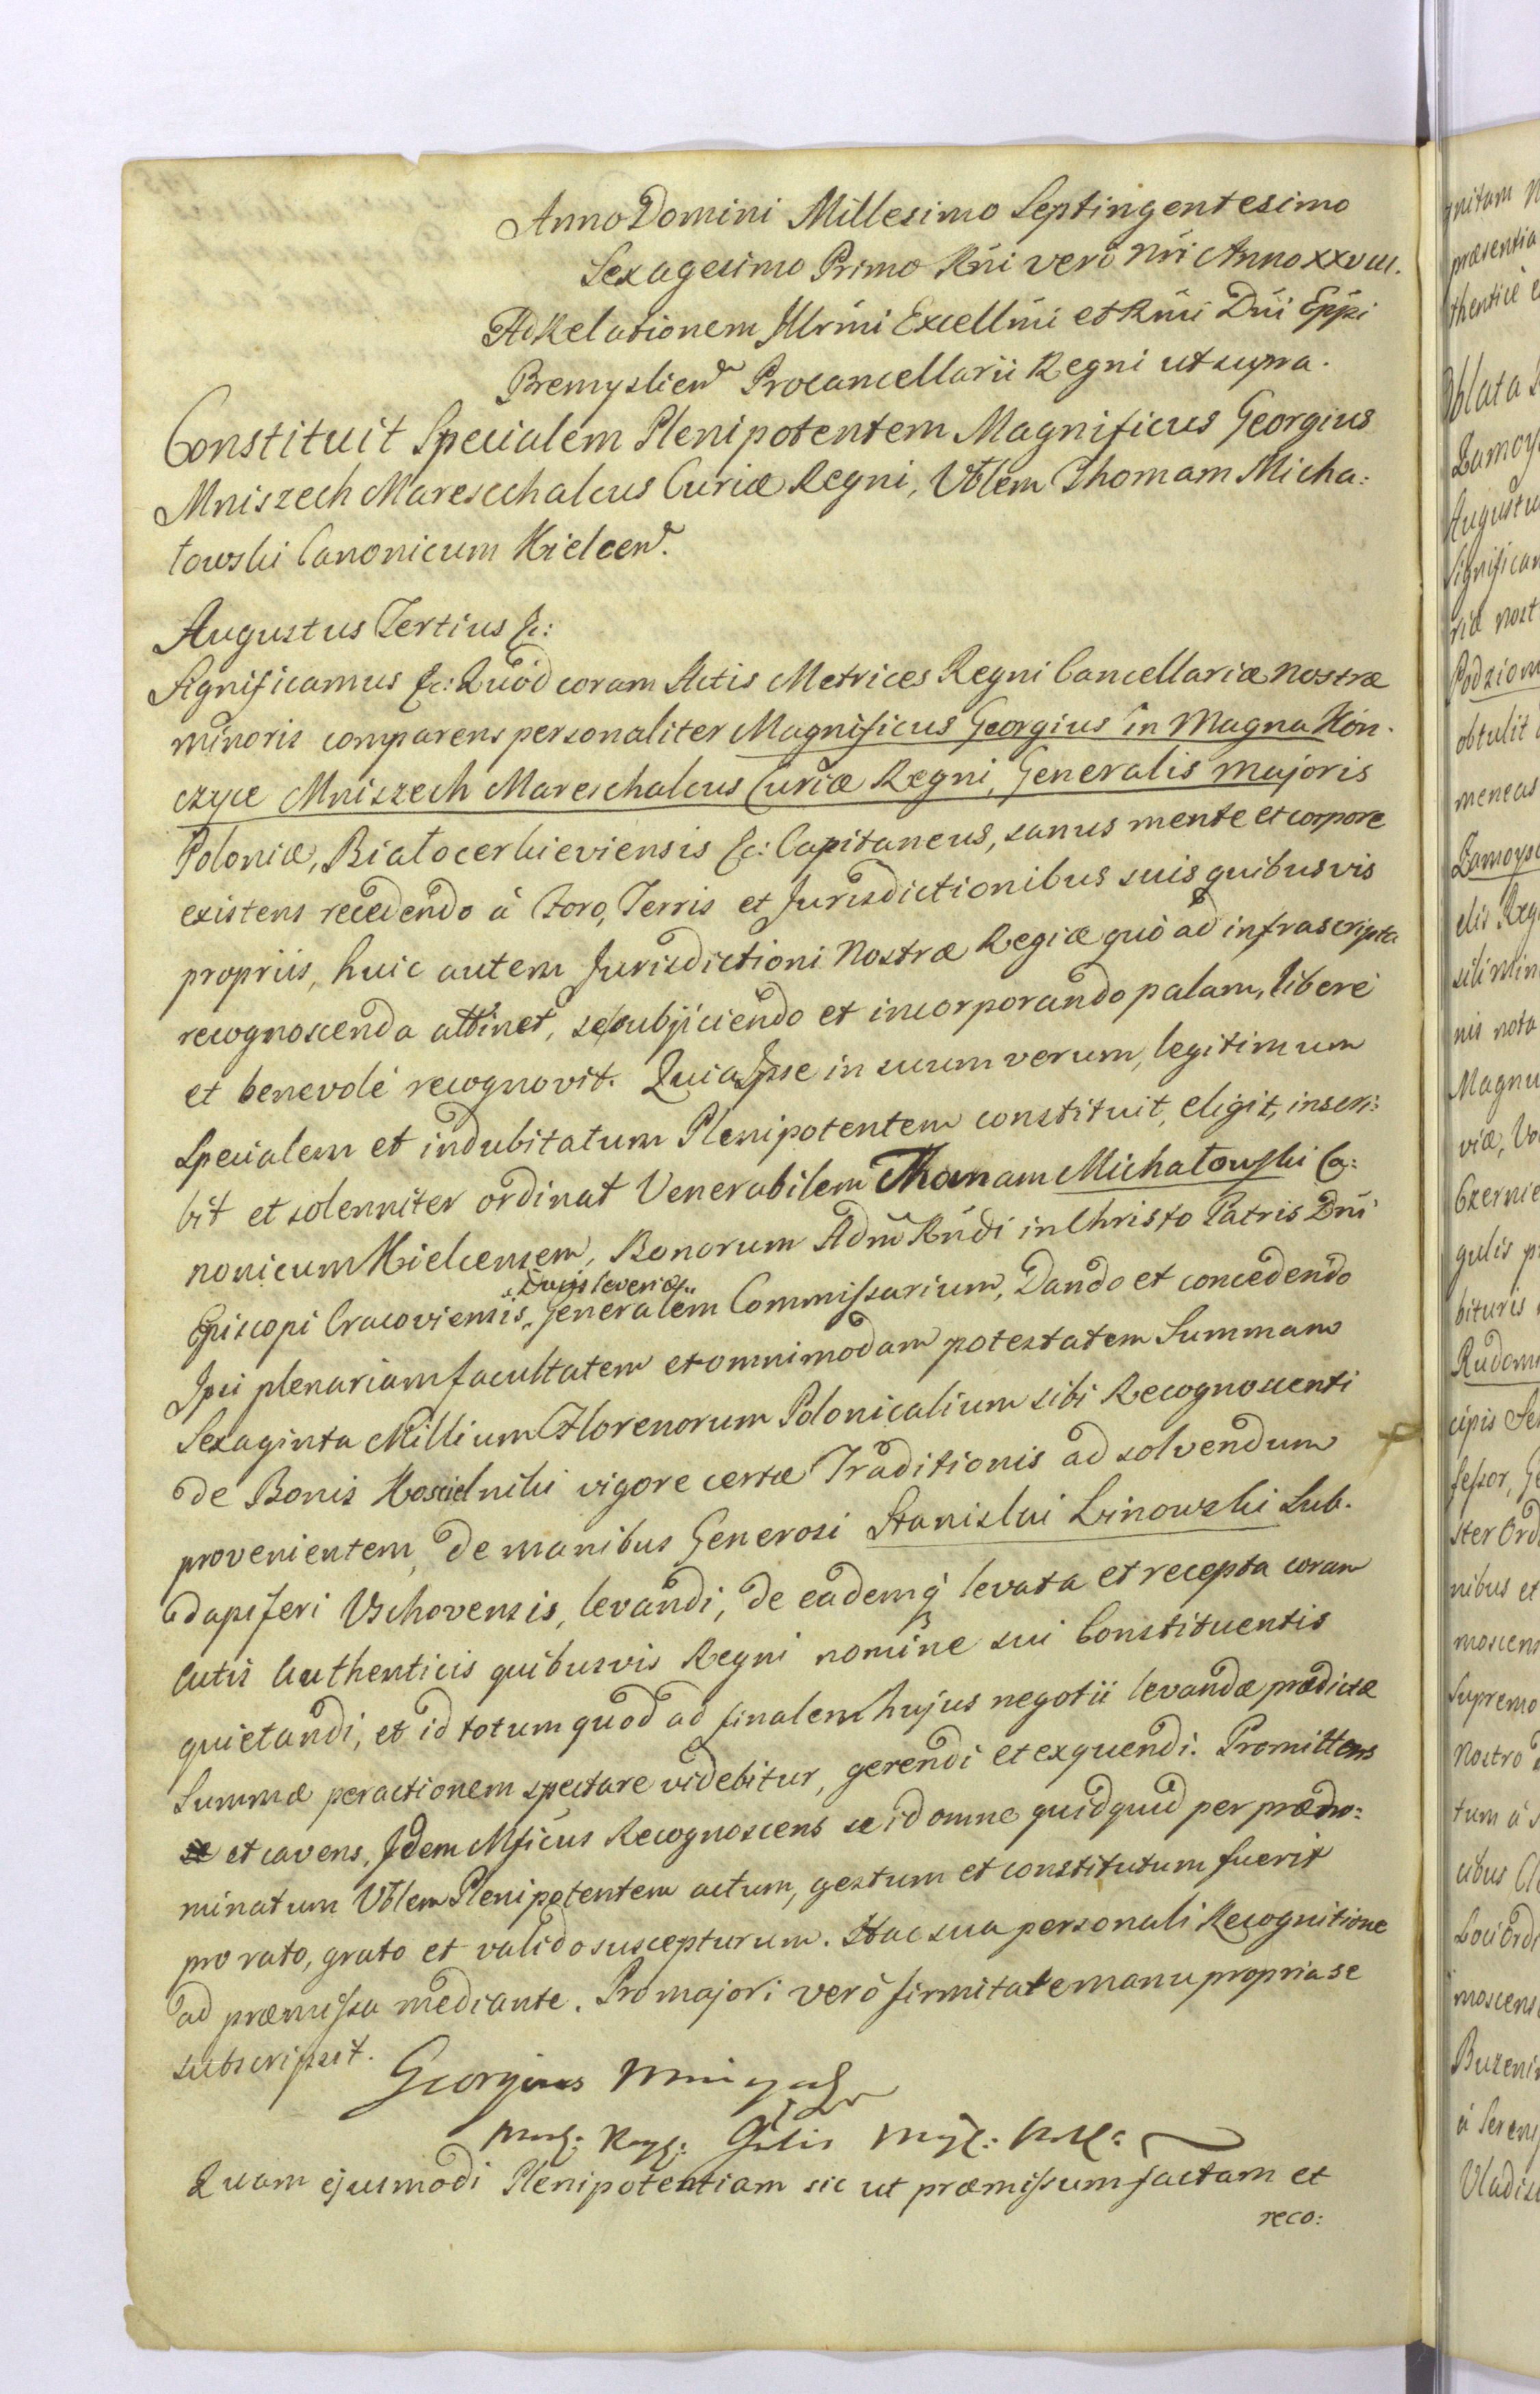 Anno Domini Millesimo Septingentesimo
Sexagesimo Primo Rñi verò Nri Anno XXVIII.
Ad Relationem Illrmi Excellmi et Rmi Dni Eppi
Premyslien Procancellarii Regni ut supra.
Constituit Specialem Plenipotentem Magnificus Georgius
Mniszech Mareschalcus Curiæ Regni, Vblem Thomam Micha:
łowski Canonicum Kielcen.
Augustus Tertius &c:
Significamus &c: Quod coram Actis Metrices Regni Cancellariæ Nostræ
minoris comparens personaliter Magnificus Georgius in Magna Kon-
czyce Mniszech Mareschalcus Curiæ Regni, Generalis Majoris
Poloniæ, Białocerkieviensis &c: Capitaneus, sanus mente et corpore
existens recedendo à Foro, Terris et Jurisdictionibus suis quibusvis
propriis, huic autem Jurisdictioni Nostræ Regiæ quò ad infrascripta
recognoscenda attinet, se subjiciendo et incorporando palam, liberè
et benevolè recognovit. Quia Ipse in suum verum, legitimum
Specialem et indubitatum Plenipotentem constituit, eligit, inscri:
bit et solenniter ordinat Venerabilem Thomam Michałowski Ca:
nonicum Kielcensem, Bonorum Adm Rndi in Christo Patris Dni
Episcopi Cracoviensis, Generalem Commissarium, Dando et concedendo
Ipsi plenariam facultatem et omnimodam potestatem Summam
Sexaginta Millium Florenorum Polonicalium sibi Recognoscenti
de Bonis Koscielniki vigore certæ Traditionis ad solvendum
provenientem, de manibus Generosi Stanislai Linowski Sub-
dapiferi Vschovensis, levandi, de eademq levata et recepta coram
Actis Authenticis quibusvis Regni nomine sui Constituentis
quietandi, et id totum quod ad finalem hujus negotii levandæ prædictæ
Summæ peractionem spectare videbitur, gerendi et exquendi. Promittens
et cavens, Idem Mficus Recognoscens se id omne quidquid per prædno:
minatum Vblem Plenipotentem actum, gestum et constitutum fuerit
pro rato, grato et valido suscepturum. Hac sua personali Recognitione
ad præmissa mediante. Pro majori verò firmitate manu propria se
subscripsit.
Georgius Mniszech
Quam ejusmodi Plenipotentiam sic ut præmissum factam et
reco: